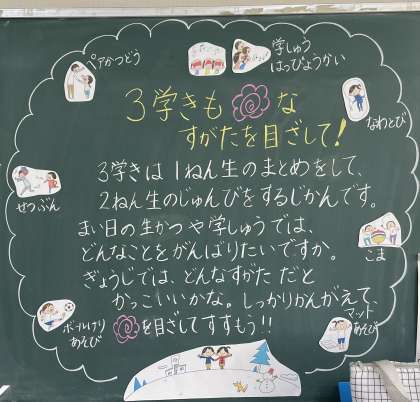 ペアかつどう
学しゅう
はっぴょうかい
3学きも
な
すがたを目ざして!
なわとび
3学きは1ねん生のまとめをして、
2ねん生のじゅんびをするじかんです。
せつぶん
まい日の生かつや学しゅうでは、
どんなことをがんばりたいですか。
こま
ぎょうじでは、どんなすがただと
かっこいいかな。しっかりかんがえて、
を目ざしてすすもう!!
ボールけり
あそび
マット
あそび